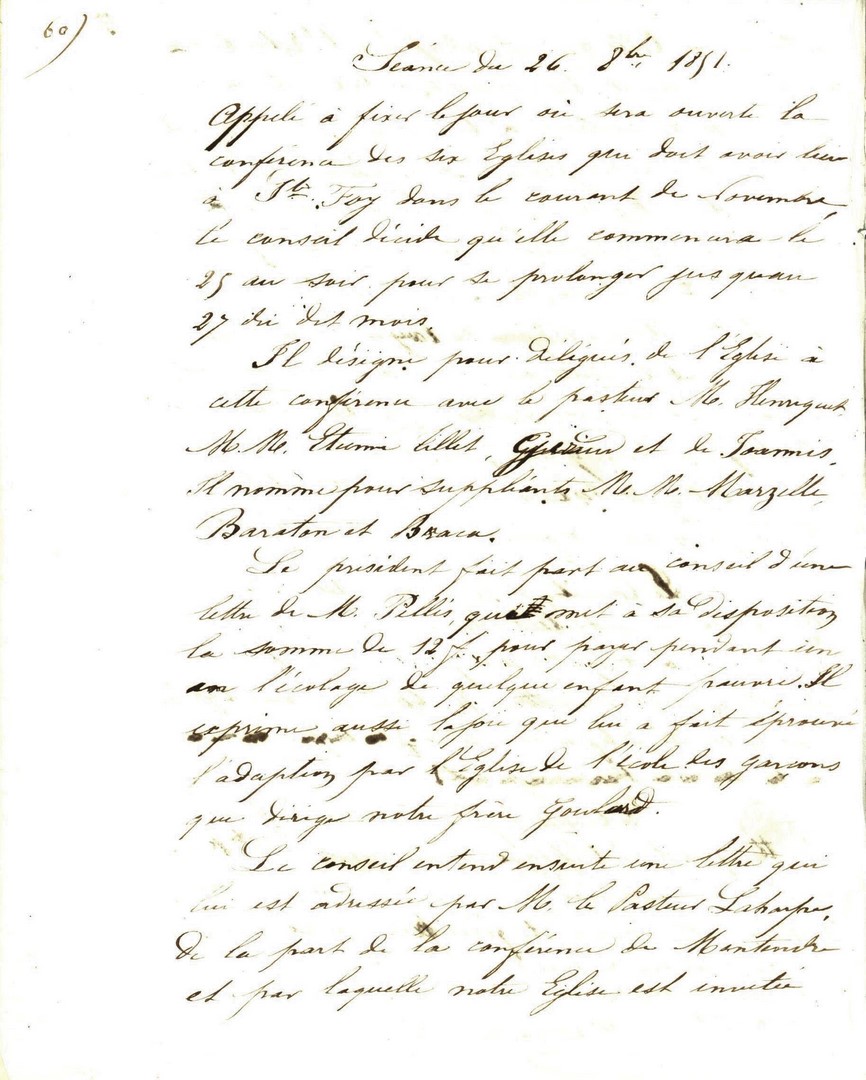 60)
Séance du 26. 8bre 1851.
Appelé à fixer le jour où sera ouverte la
conférence des six Eglises qui doit avoir lieu
à Ste. Foy dans le courant de Novembre,
le conseil décide qu'elle commencera le
25 au soir pour se prolonger jusqu'au
27 du dit mois.
Il désigne pour délégués de l'Eglise à
cette conférence avec le pasteur M. Henriquet
M. M. Etienne et de Joannis.
Il nomme pour suppléants M. M. Marzelle,
Baraton et Braca.
Le président fait part au conseil d'une
lettre de M. Pellis, qui met à sa disposition
la somme de 12 f. pour payer pendant un
an l'écolage de quelque enfant pauvre. Il
exprime aussi la joie que lui a fait éprouver
l'adoption par l'Eglise de l'école des garçons
que dirige notre frère Goulard.
Le conseil entend ensuite une lettre qui
lui est adressée par M. le Pasteur Laharpe,
de la part de la conférence de Montendre
et par laquelle notre Eglise est invitée